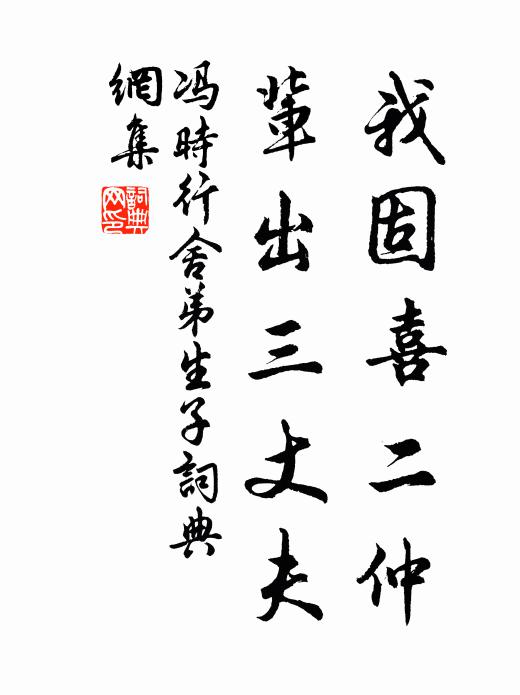 我固喜二仲
輩出三丈夫
冯時行舍弟生子詞典
網集
詞典網印